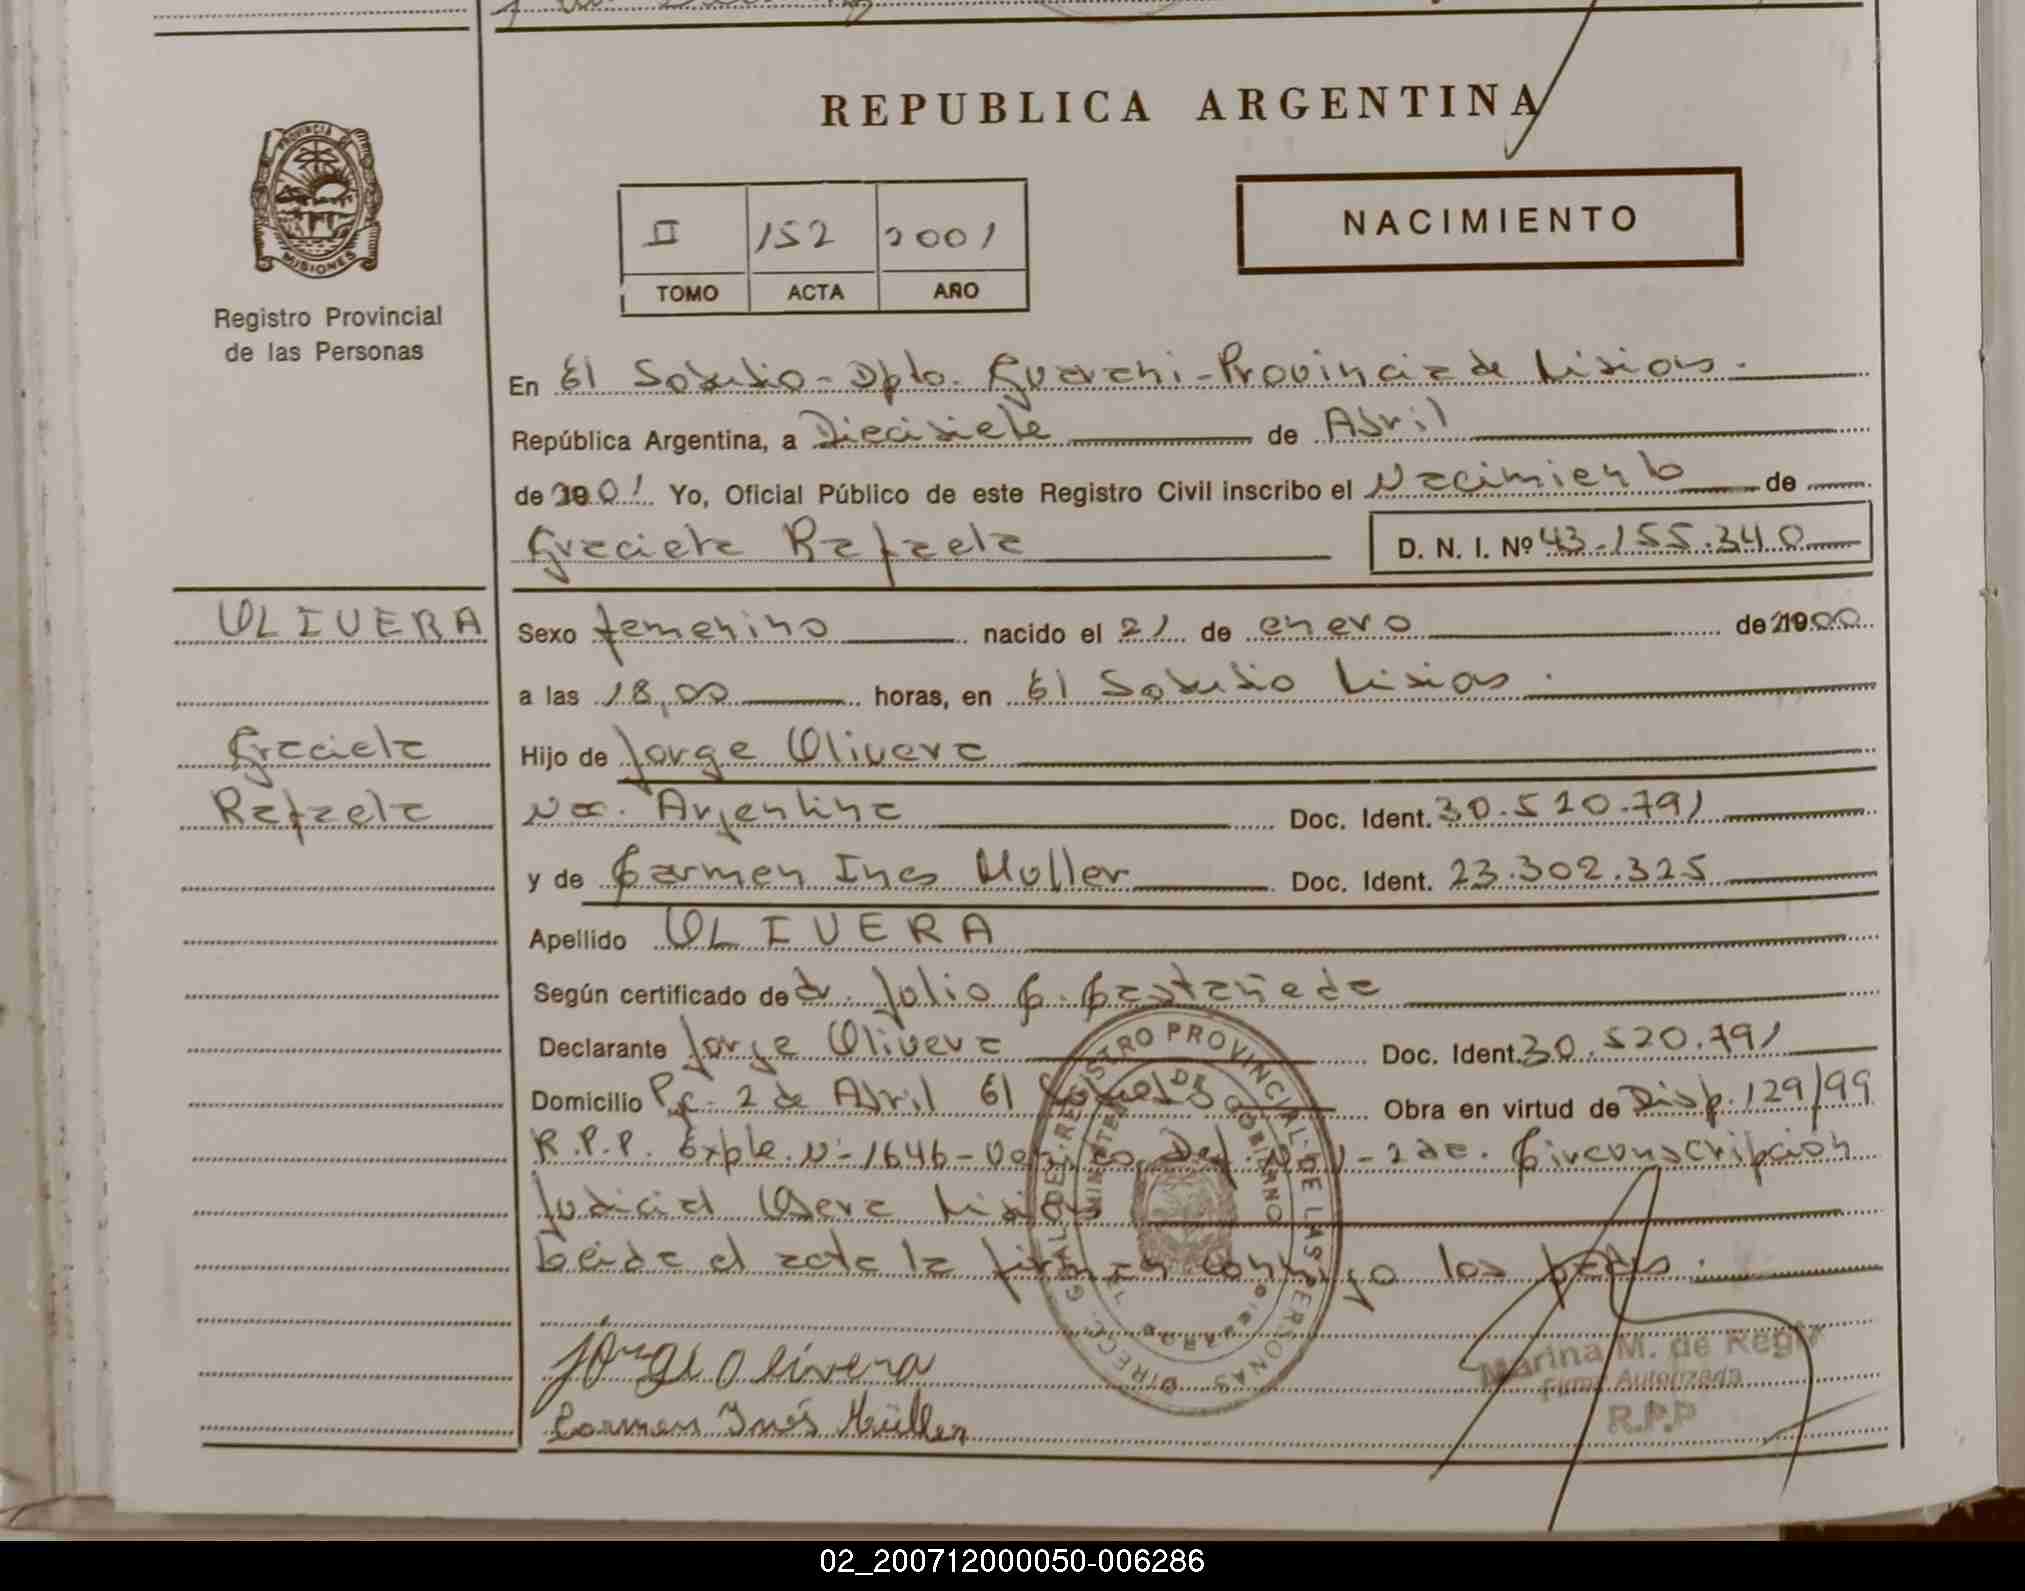 REPUBLICA ARGENTINA
PROVINCIA
MISIONES
Registro Provincial
de las Personas
II 152 2001
TOMO ACTA AÑO
NACIMIENTO
En El Soberbio - Dpto. Guarani - Provincia de Misiones.
República Argentina, a Diecisiete de Abril
de 2001 Yo, Oficial Público de este Registro Civil inscribo el Nacimiento de
Graciela Rafaela D. N. I. Nº 43.155.340
OLIVERA
Graciela
Rafaela
Sexo femenino nacido el 21 de enero de 2000
a las 18,00 horas, en El Soberbio Misiones.
Hijo de Jorge Olivera
Nac. Argentina Doc. Ident. 30.520.791
y de Carmen Ines Muller Doc. Ident. 23.302.325
Apellido OLIVERA
Según certificado de dr. Julio C. Castañeda
Declarante Jorge Olivera Doc. Ident. 30.520.791
Domicilio Pje. 2 de Abril El Soberbio Obra en virtud de Disp. 129/99
R.P.P. Expte. Nº 1646 - Nº 1 - 2da. Circunscripción
Judicial Obera Misiones
Leida el acta la firman conmigo los padres.
Jorge Olivera
Carmen Inés Müller
DIRECC. GRAL. DEL REGISTRO PROVINCIAL DE LAS PERSONAS
MINISTERIO DE GOBIERNO
Marina M. de
Firma Autorizada
R.P.P
02_200712000050-006286